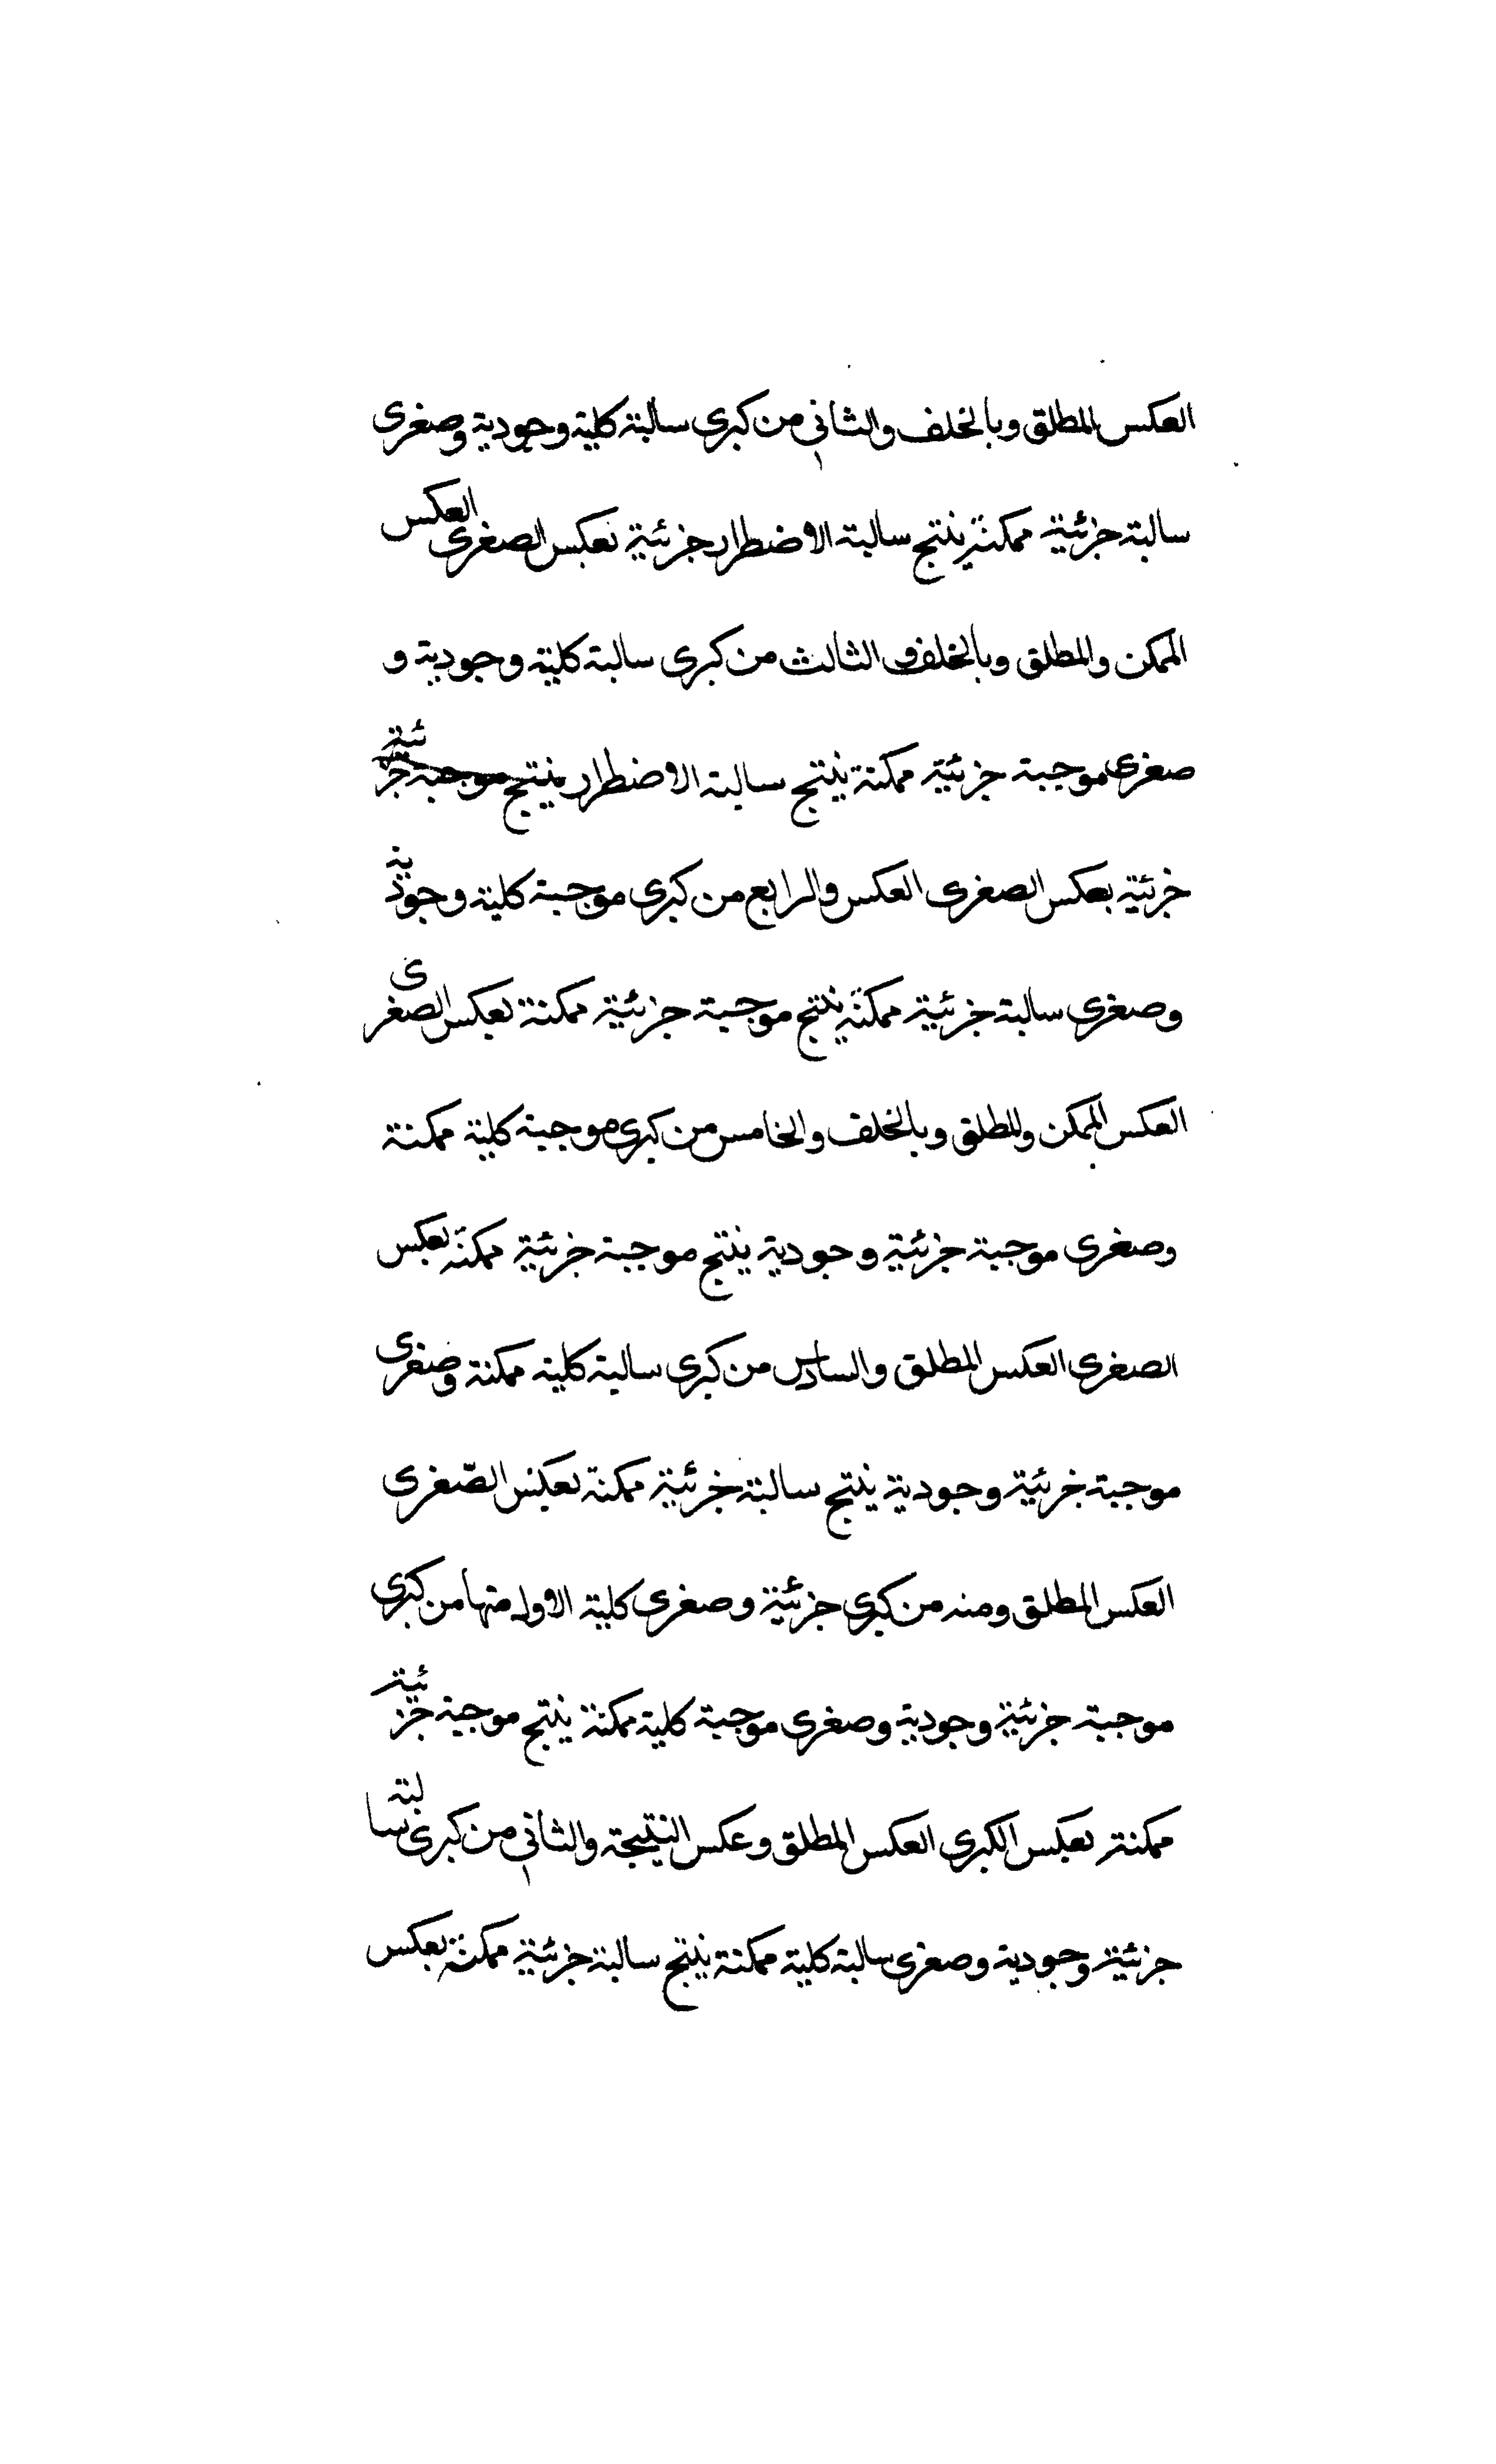 العكس المطلق وبالخلف والثانى من كبرى سالبة كلية وجودية وصغرى
سالبة جزئية ممكنة ينتج سالبة الاضطرار جزئية بعكس الصغرى العكس
الممكن والمطلق وبالخلف والثالث من كبرى سالبة كلية وجودية و
صغرى موجبة جزئية ممكنة ينتج سالبة الاضطرار ينتج موجبة جزئية
جزئية بعكس الصغرى العكس والرابع من كبرى موجبة كلية وجودية
وصغرى سالبة جزئية ممكنة ينتج موجبة جزئية ممكنة بعكس الصغرى
العكس الممكن والمطلق وبالخلف والخامس من كبرى موجبة كلية ممكنة
وصغرى موجبة جزئية وجودية ينتج موجبة جزئية ممكنة بعكس
الصغرى العكس المطلق والسادس من كبرى سالبة كلية ممكنة وصغرى
موجبة جزئية وجودية ينتج سالبة جزئية ممكنة بعكس الصّغرى
العكس المطلق ومنه من كبرى جزئية وصغرى كلية الاول منها من كبرى
موجبة جزئية وجودية وصغرى موجبة كلية ممكنة ينتج موجبة جزئية
ممكنة بعكس الكبرى العكس المطلق وعكس النتيجة والثانى من كبرى سالبة
جزئية وجودية وصغرى سالبة كلية ممكنة ينتج سالبة جزئية ممكنة بعكس